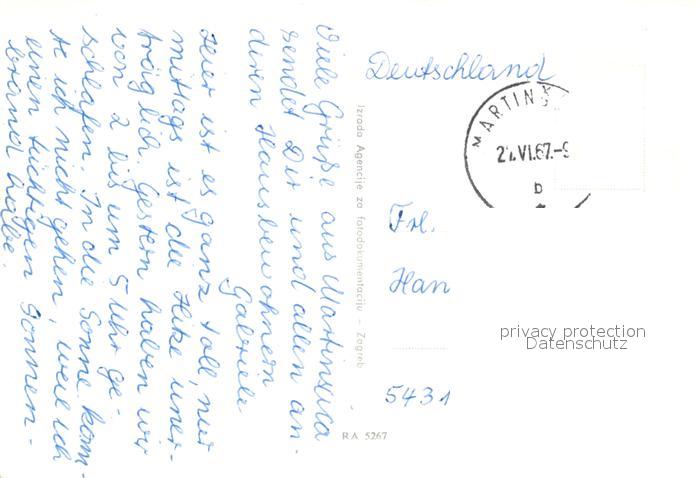 Viele Grüße aus Martinšcica
sendet Dir und allen an-
deren Hausbewohnern
Gabriele
Hier ist es ganz toll, nur
mittags ist die Hitze uner-
träglich. Gestern haben wir
von 2 bis um 5 Uhr ge-
schlafen. In die Sonne konn-
te ich nicht gehen, weil ich
einen tüchtigen Sonnen-
brand habe.
Izrada Agencije za fotodokumentaciju - Zagreb
RA 5267
Deutschland
MARTINŠ
21.VI.67.-9
b
Frl.
Han
privacy protection
Datenschutz
5431